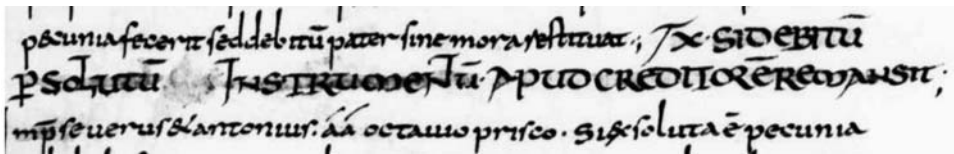 pecunia fecerit sed debitū pater sine mora restituat ·; IX · SI DEBITŪ
ꝑSOLUTŪ INSTRUMENTŪ · APUD CREDITORĒ REMANSIT ;
imp̄ severus & antonius · áá octavio prisco · Si soluta ē pecunia